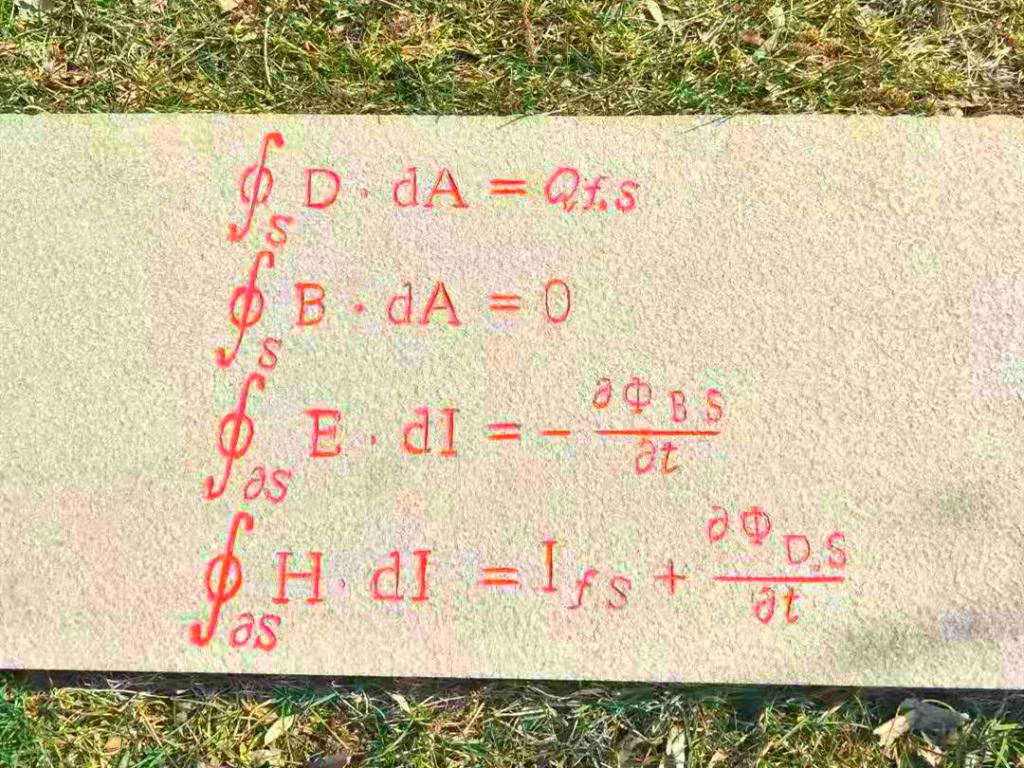 ∮_S D · dA = Q_{f,S}
∮_S B · dA = 0
∮_{∂S} E · dI = - ∂Φ_{B S} / ∂t
∮_{∂S} H · dI = I_{f S} + ∂Φ_{D,S} / ∂t